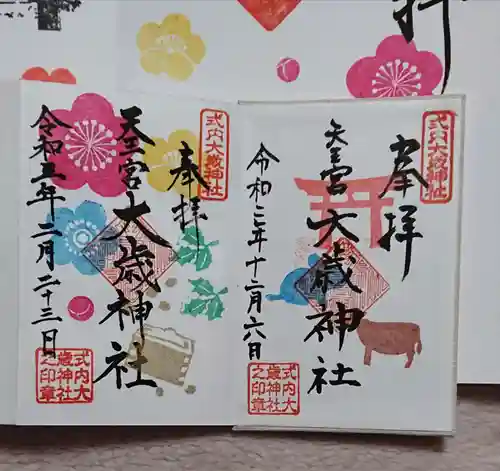 式内大歳神社
奉拝
天王宮 大歳神社
令和三年十二月六日
式内大歳神社之印章
式内大歳神社
奉拝
天王宮 大歳神社
令和五年二月二十三日
式内大歳神社之印章